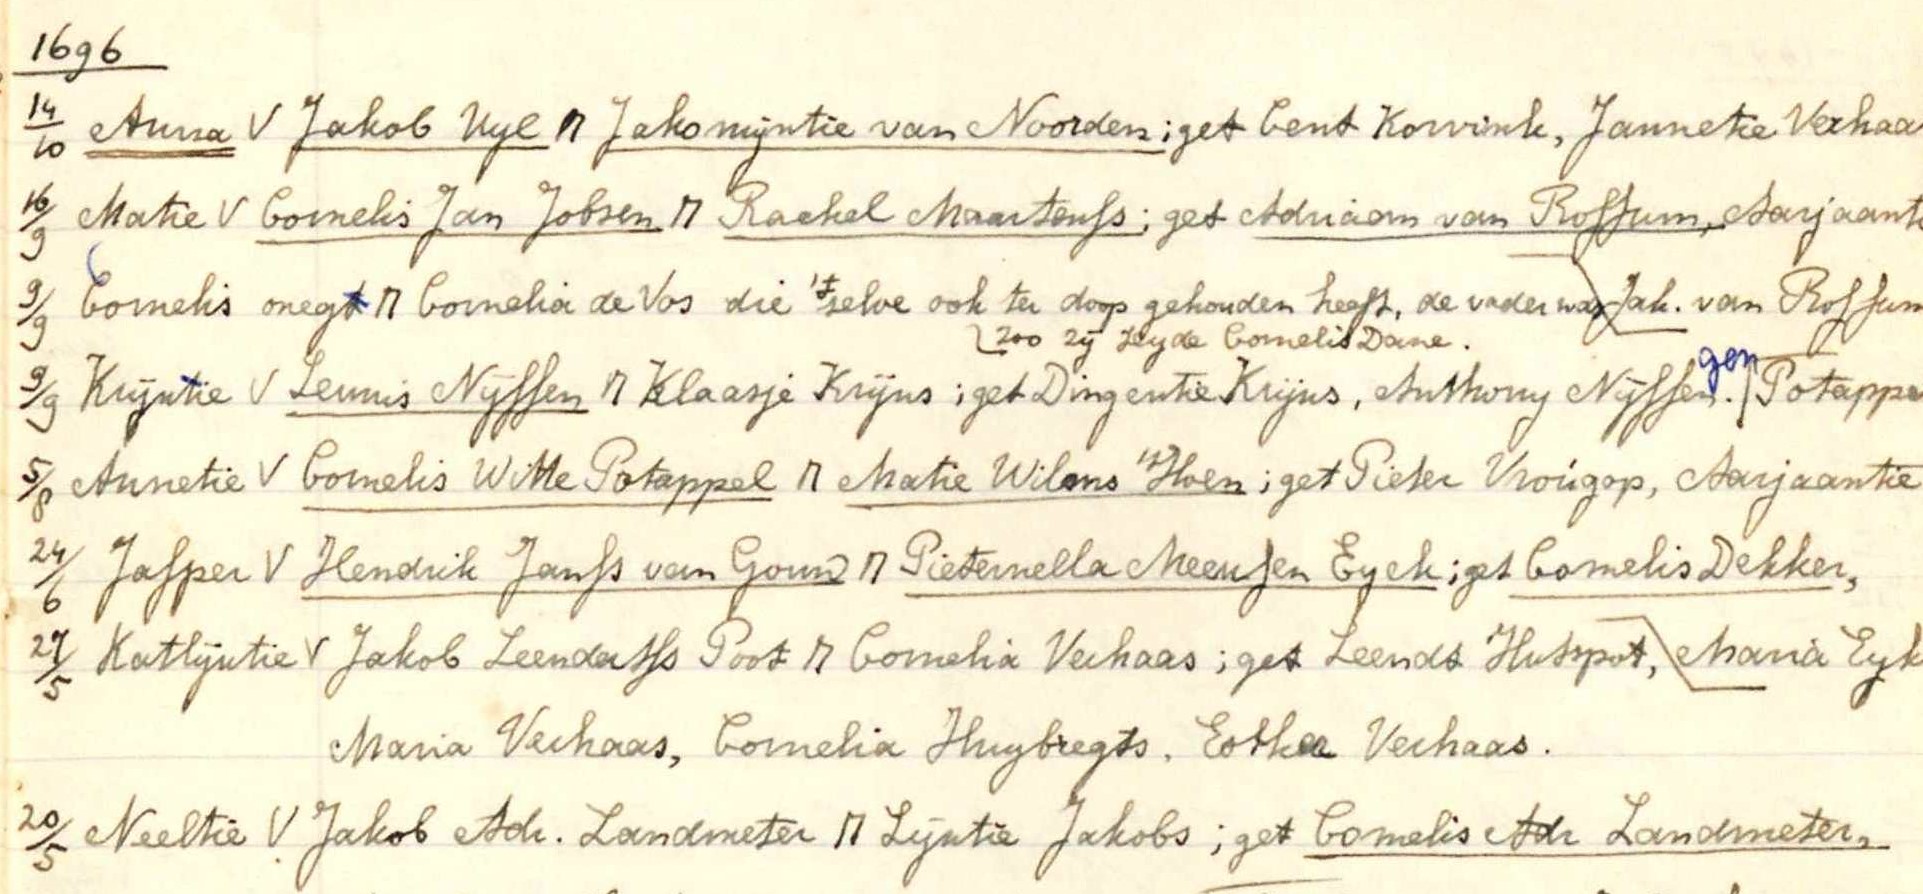 1696
14/10 Anna V Jakob Uyl M Jakomijntie van Noorden; get Cent Korvink, Jannetie Verhaa
16/9 Matie V Cornelis Jan Jobsen M Rachel Maartenss; get Adriaan van Rossum, Aarjaant
9/9 Cornelis onegt M Cornelia de Vos die 't selve ook ten doop gehouden heeft, de vader was Jak. van Rossum
zoo zij zeyde Cornelis Dane.
9/9 Krijntie V Leunis Nijssen M Klaasje Krijns; get Dingentie Krijns, Anthony Nijssen. gen Potappe
5/8 Annetie V Cornelis Witte Potappel M Matie Wilms 't Hoen; get Pieter Vroúgop, Aarjaantie
24/6 Jasper V Hendrik Janss van Gounz M Pieternella Meeussen Eyck; get Cornelis Dekker,
27/5 Katlijntie V Jakob Leendertss Poot M Cornelia Verhaas; get Leendt Hutspot, Maria Eyk
Maria Verhaas, Cornelia Huybregts. Esther Verhaas.
20/5 Neeltie V Jakob Adr. Landmeter M Lijntie Jakobs; get Cornelis Adr Landmeter,